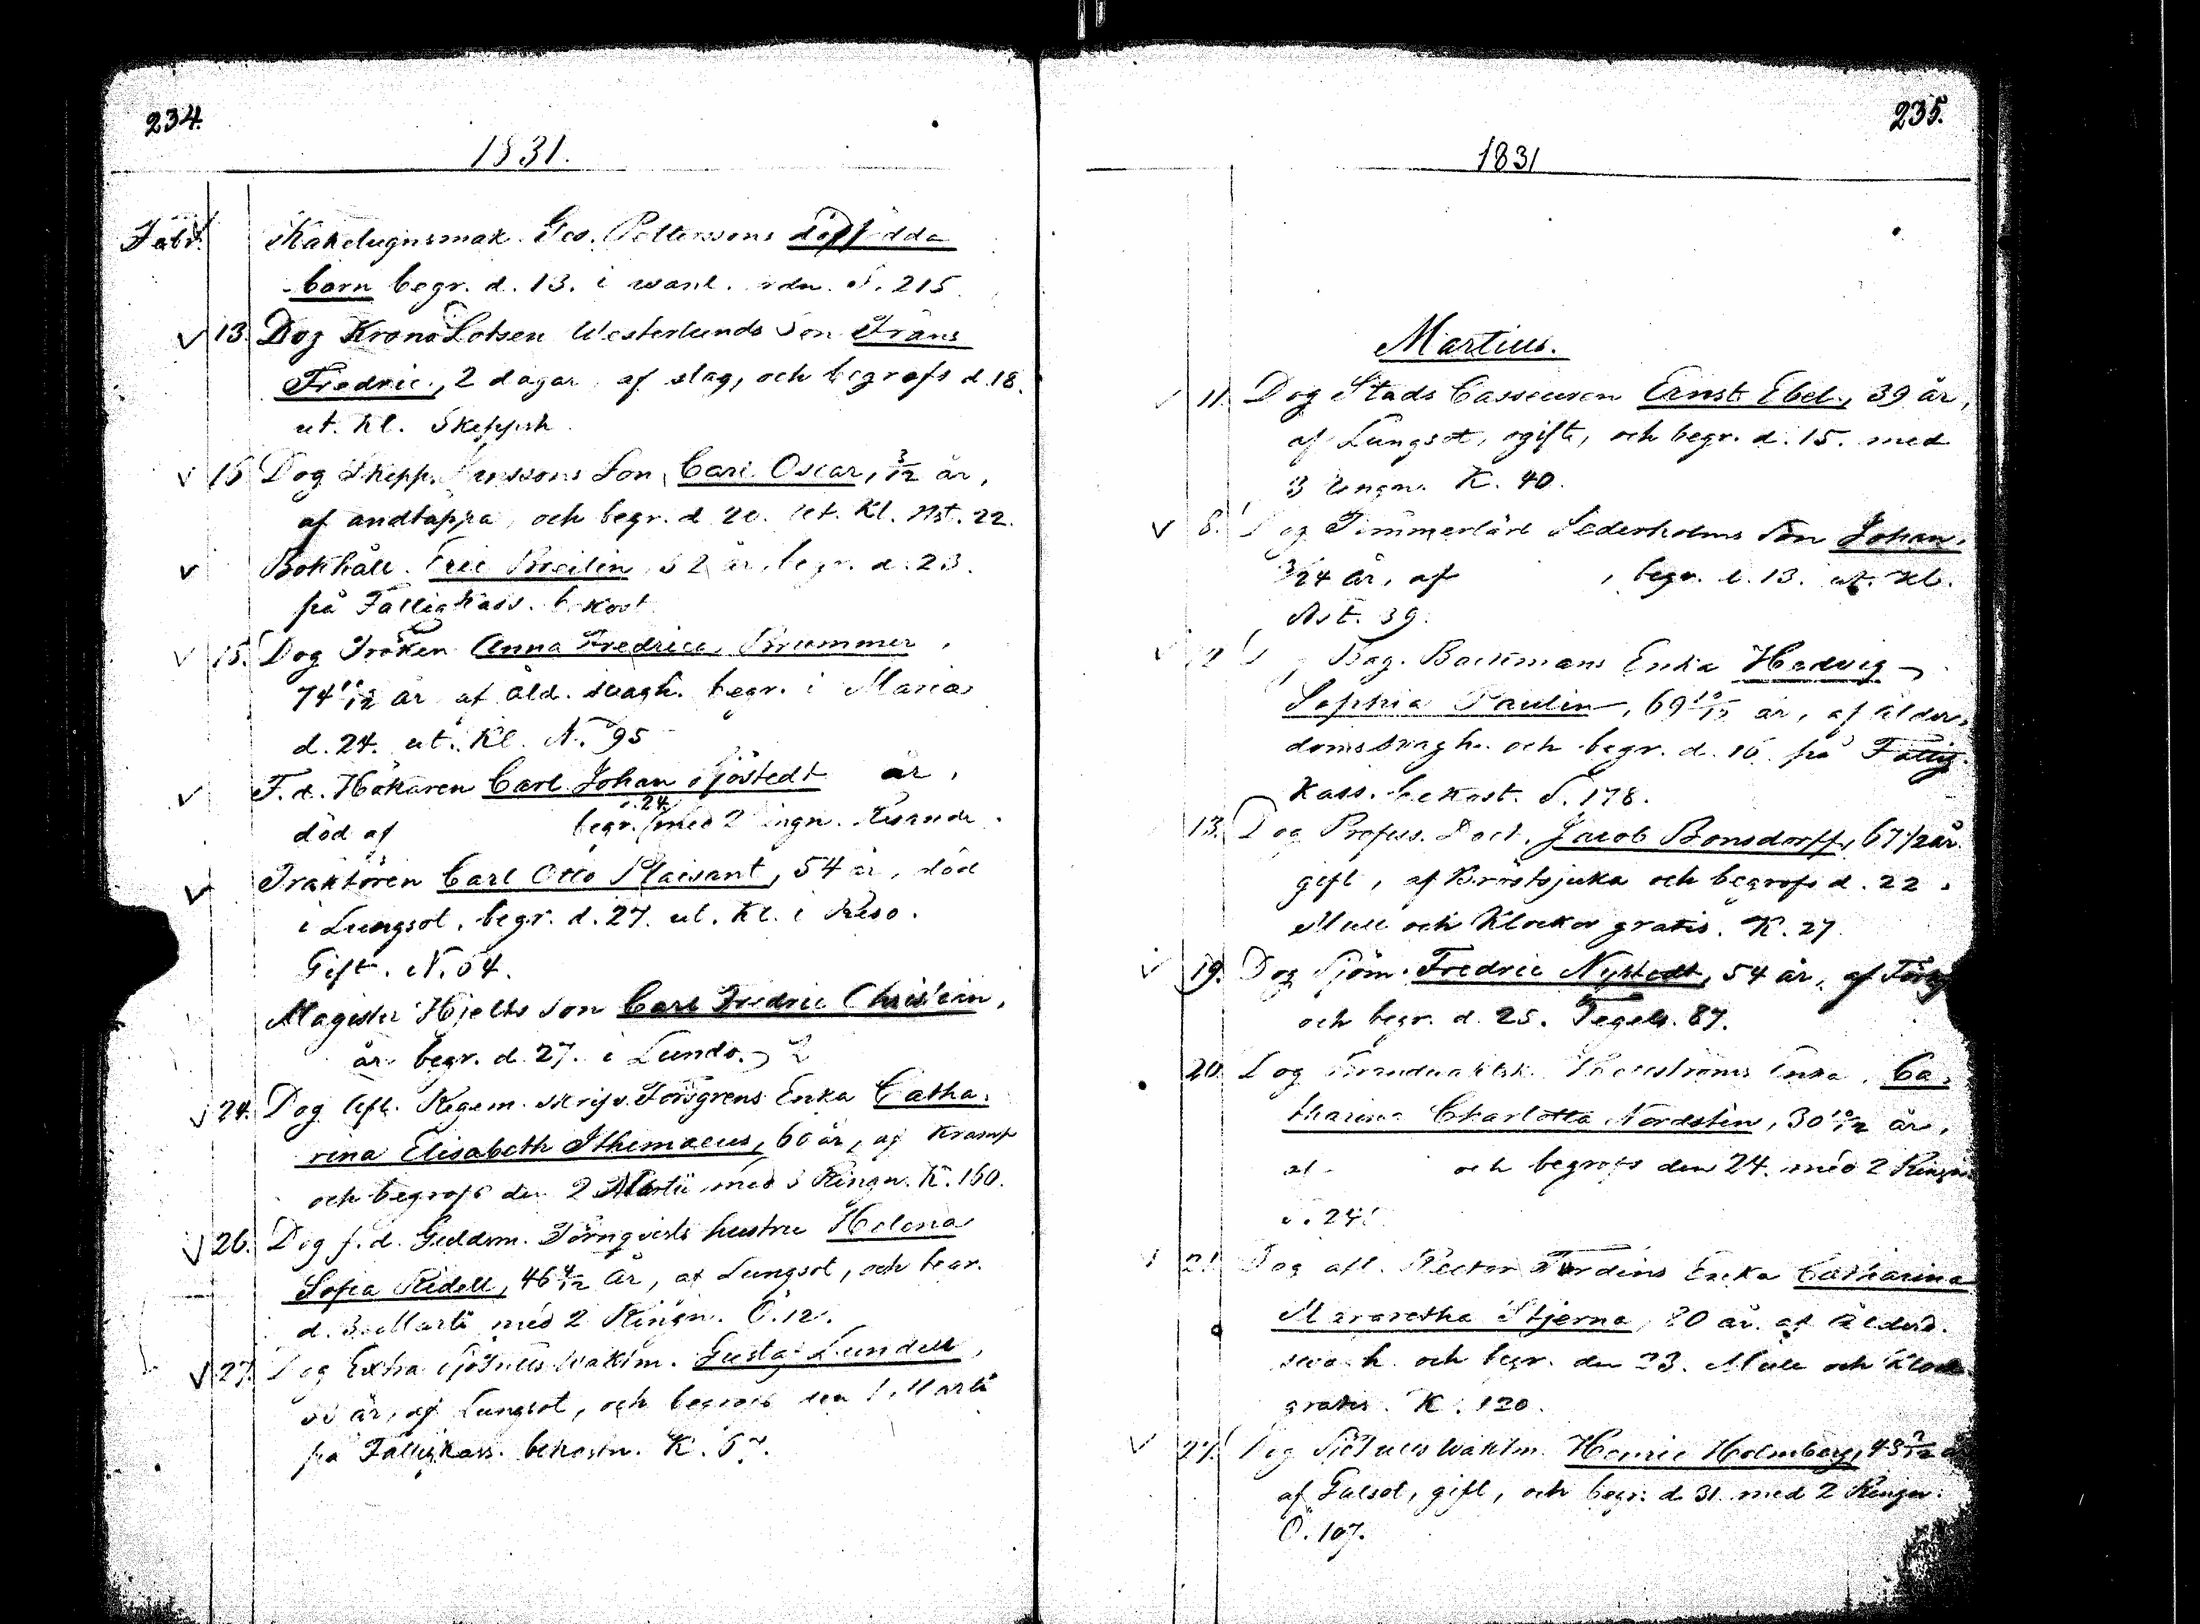 234.
1831.
Febr. Kakelugnsmak. Ges. Petterssons dödfödda
barn begr. d. 13. i wanl. ordn. S. 215
13. Dog KronoLotsen Westerlunds Son Frans
Fredric, 2 dagar, af slag, och begrofs d. 18.
ut. Kl. Skeppsh.
15 Dog Skepp. Janssons Son, Carl Oscar, 3/12 år,
af andtäppa, och begr. d. 20. ut. Kl. Nst. 22.
Bokhåll. Eric 52 år, begr. d. 23.
på Fattigkass. bekost
15. Dog Fröken Anna Fredrica Brummer,
74 11/12 år af åld. svagh. begr. i Maria
d. 24. ut. Kl. N. 95
F. d. Hökaren Carl Johan Sjöstedt år,
död af begr. d. 24 med 2 ringn.
Traktören Carl Otto Plaisant, 54 år, död
i Lungsot, begr. d. 27. ut. Kl. i Reso.
Gift. N. 64.
Magister Hjelts Son Carl Fredric Christein,
år begr. d. 27. i Lundo.
24. Dog Afl. Regem. skrifv. Forsgrens Enka Catha=
rina Elisabeth Ithimaeus, 60 år, af Kramp
och begrofs den 2 Martii med 3 Ringn. K. 160.
26. Dog f. d. Guldsm. Törnqvists hustru Helena
Sofia Ridell, 46 4/12 år, af Lungsot, och begr.
d. 3. Martii med 2 Ringn. Ö. 12.
27. Dog Extra SjöTulls Waktm. Gustaf Lundell,
år, af Lungsot, och begrofs den 1. Martii
på Fattigkass. bekostn. K.
235.
1831
Martius.
11. Dog Stads Casseuren Ernst Ebel, 39 år,
af Lungsot, ogift, och begr. d. 15. med
3 Ringn. K. 40.
8. Dog Timmerkärl Sederholms Son Johan,
3/24 år, af , begr. d. 13. ut. Kl.
Nst. 39.
12 Dog Bag. Backmans Enka Hedvig
Sophia Paulin, 69 10/12 år, af ålder=
domssvagh. och begr. d. 16 på Fattig.
Kass. bekost. S. 178.
13. Dog Profess. Doct. Jacob Bonsdorff, 67 1/2 år.
gift, af Bröstsjuka och begrofs d. 22.
Mull och Klockor gratis. K. 27.
19. Dog Sjöm. Fredric Nystedt, 54 år, af
och begr. d. 25. Tegels. 87.
20. Dog Brandvaktsk. Enka, Ca=
tharina Charlotta Nordstén, 30 10/12 år,
af och begrofs den 24. med 2 Ringn.
21 Dog afl. Rector Enka Catharina
Margaretha Stjerna, 80 år. af Ålderd.
svagh. och begr. den 23. Mull och Klock
gratis. K. 120.
27. Dog SjöTulls Waktm. Henric Holmberg, 43
af Gulsot, gift, och begr. d. 31. med 2 Ringn.
Ö. 107.